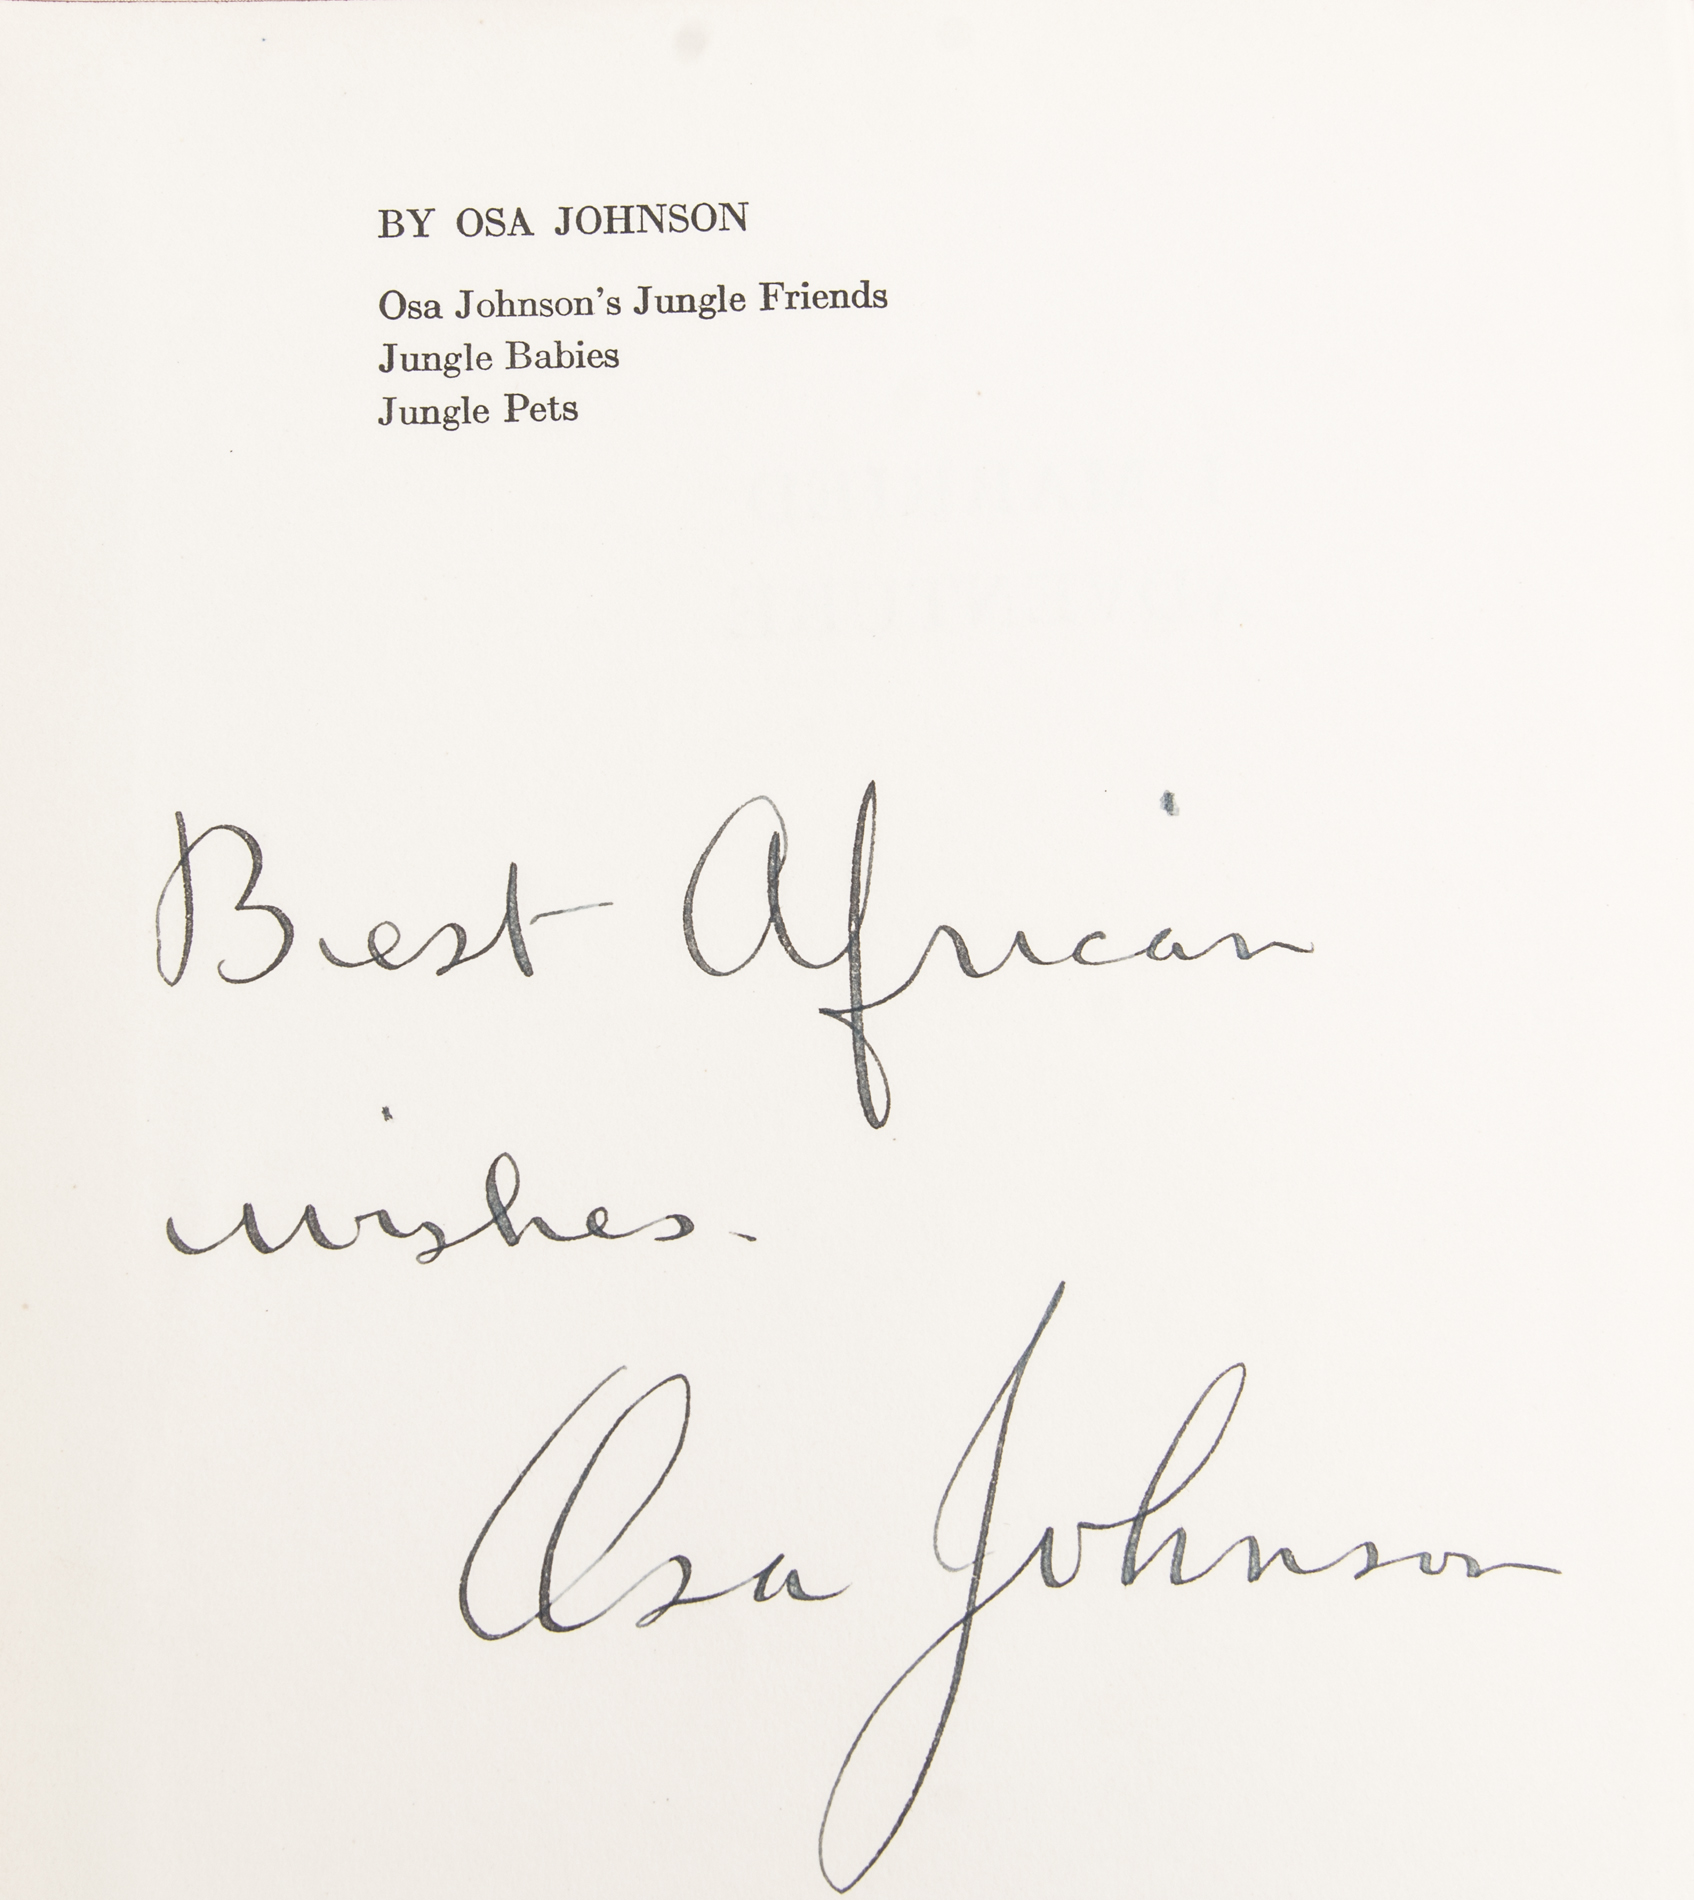 BY OSA JOHNSON
Osa Johnson's Jungle Friends
Jungle Babies
Jungle Pets
Best African
wishes.
Osa Johnson